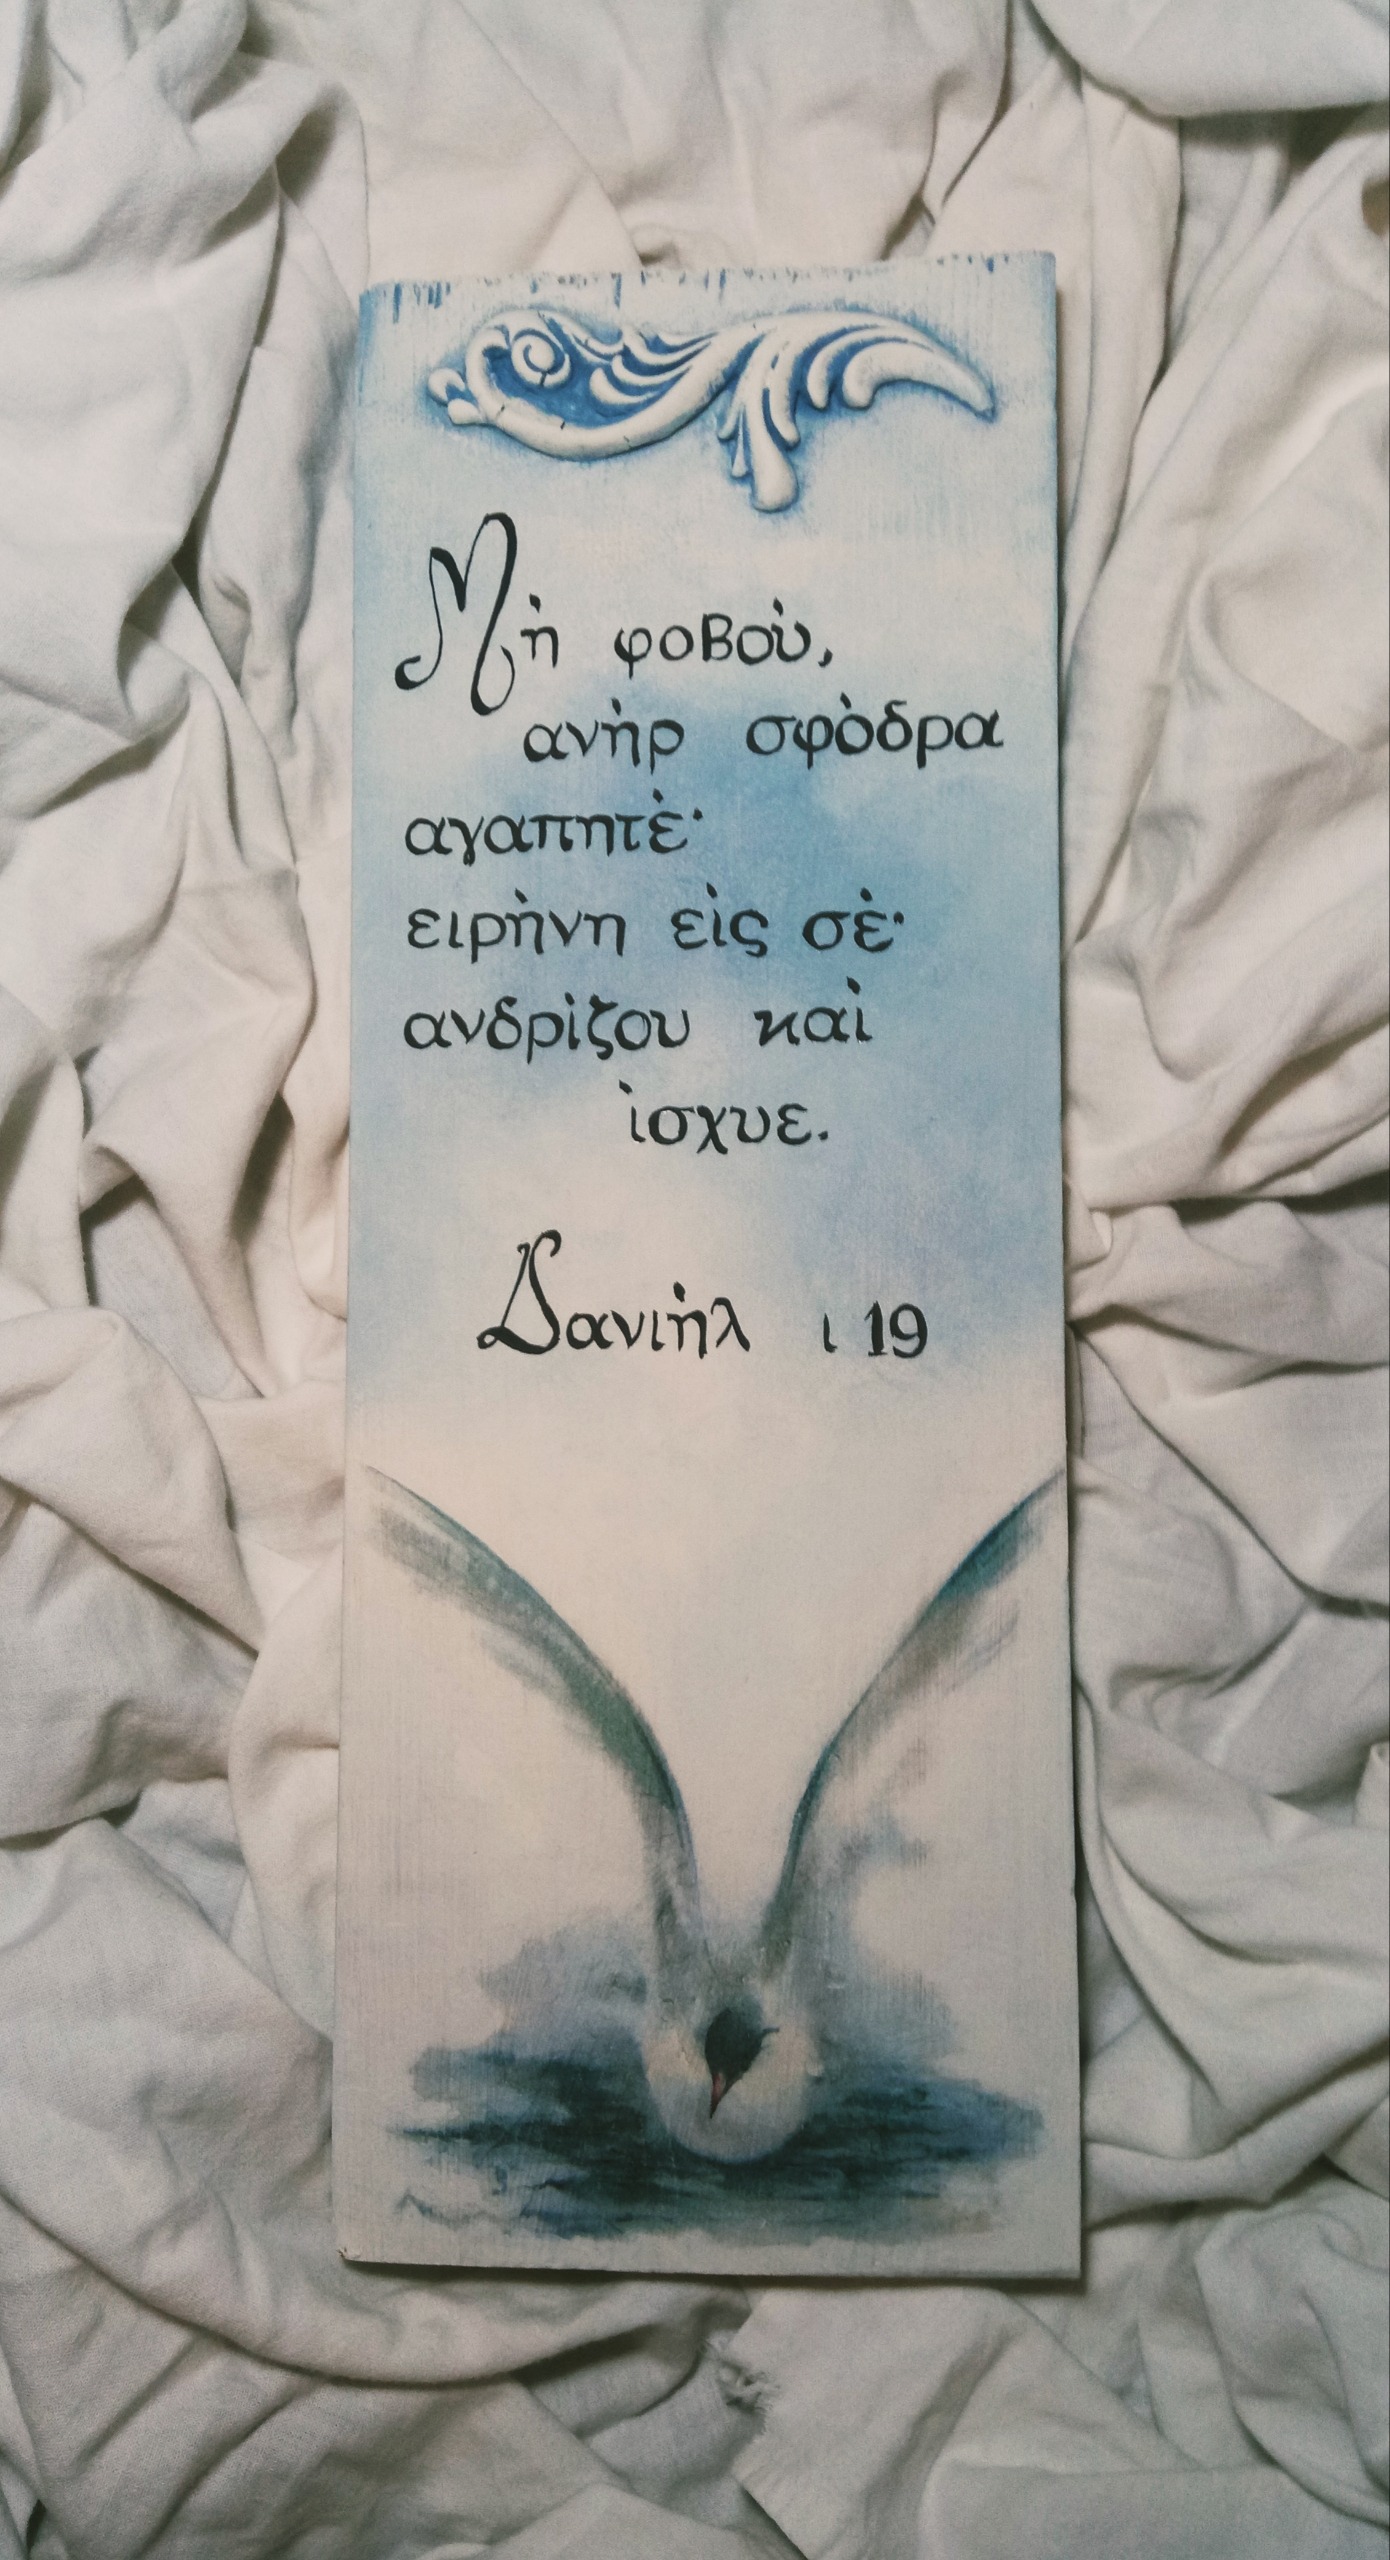 Μή φοβού,
ανήρ σφόδρα
αγαπητέ·
ειρήνη είς σέ·
ανδρίζου καί
ίσχυε.
Δανιήλ ι 19